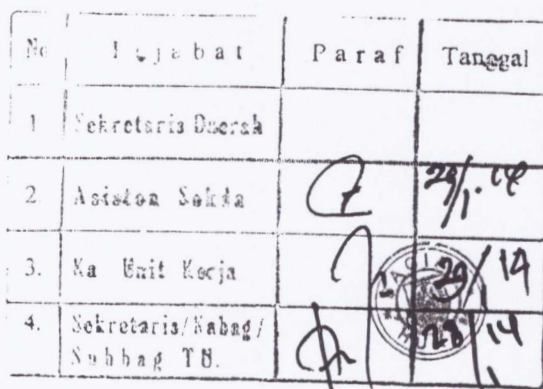 No Pejabat Paraf Tanggal
1 Sekretaris Daerah
2 Asisten Sekda 29/1.14
3. Ka Unit Kerja 29/14
4. Sekretaris/Kabag/ 28 14
Subbag TU.